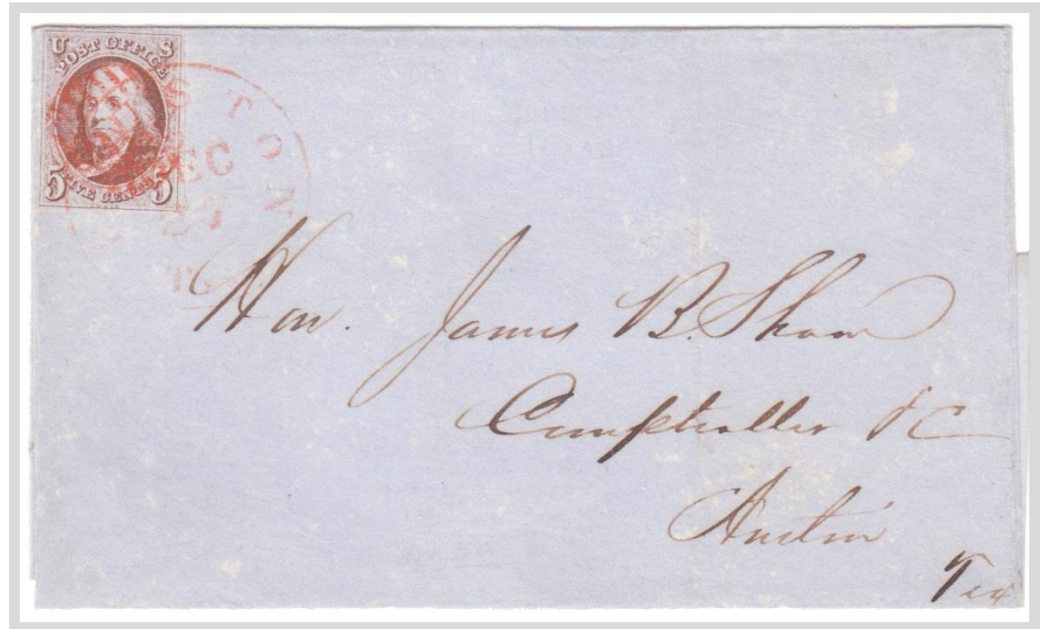 U S
POST OFFICE
5 FIVE CENTS 5
STON
DEC
27
Hon. James B. Shaw
Comptroller &C
Austin
Tex